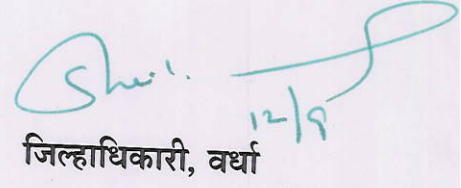 12/9
जिल्हाधिकारी, वर्धा